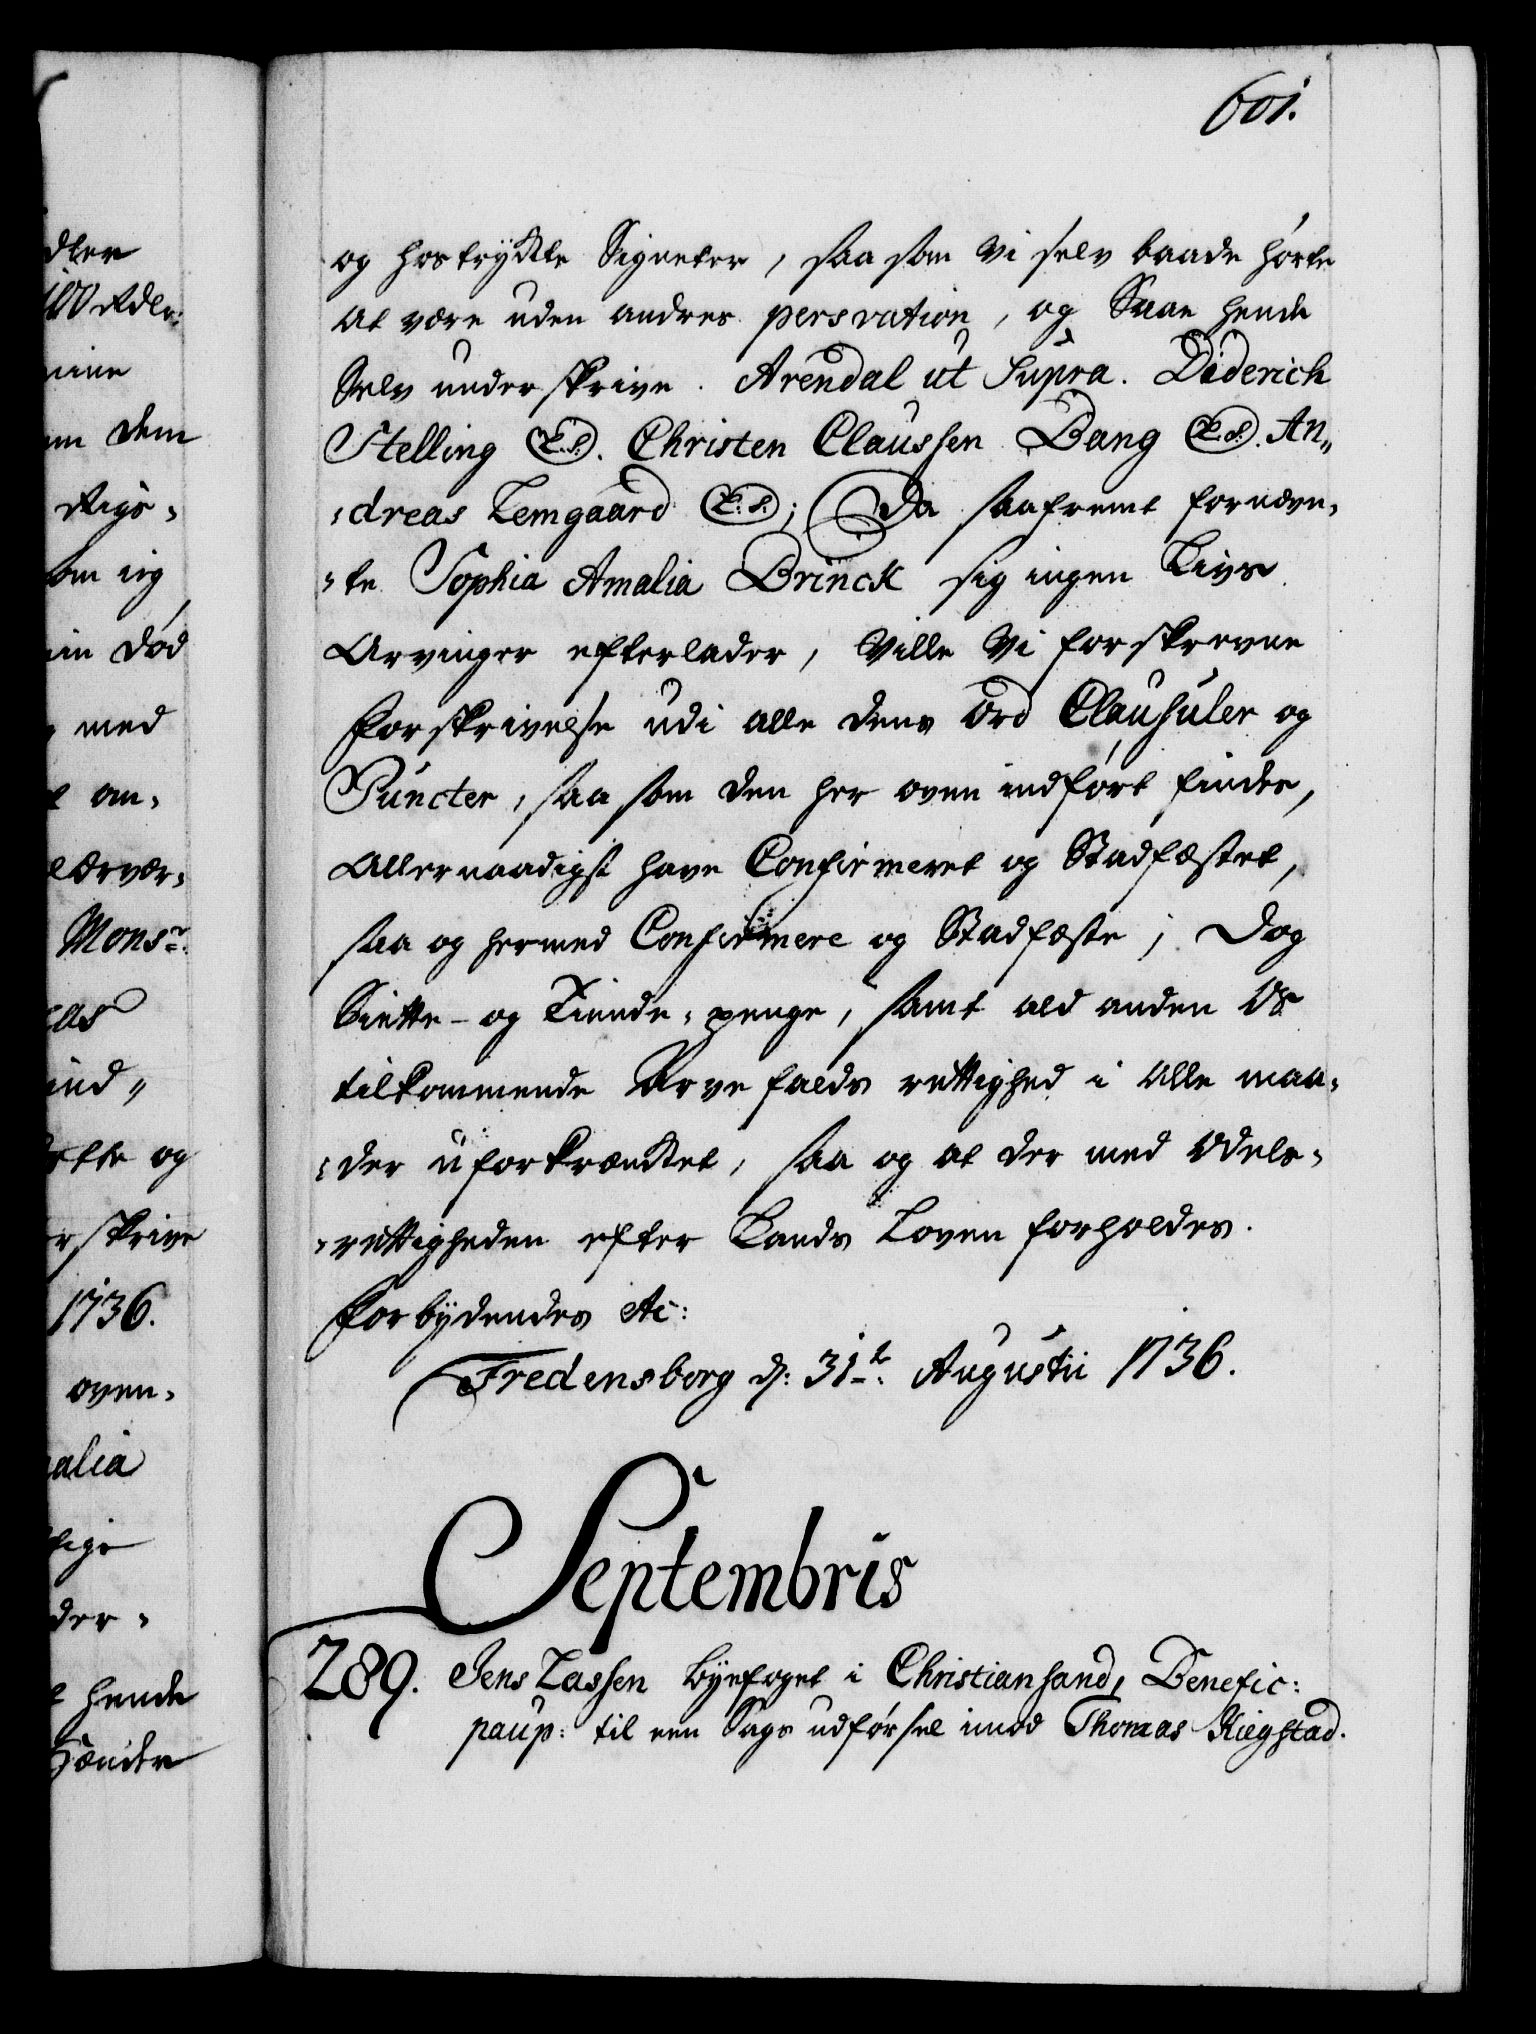 601.
og hostrykte Signeter, saa som vi selv baade hørte
at være uden andres persvation, og Saae hende
Selv underskrive. Arendal ut Supra. Diderich
Stelling (L.S.). Christen Claussen Bang (L.S.). An„
„dreas Lemgaard (L.S.); Da saafremt fornævn„
„te Sophia Amalia Brinck sig ingen Livs
Arvinger efterlader, Ville Vi forskrevne
Forskrivelse udi alle dens Ord Clausuler og
Puncter, saa som den her oven indført findes,
Allernaadigst have Confirmeret og Stadfæstet,
saa og hermed Confirmere og Stadfæste; Dog
Siette- og Tiende-penge, samt ald anden Os
tilkommende Arvefalds rettighed i alle maa„
„der uforkrænket, saa og at der med Odels„
„rettigheden efter Lands Loven forholdes.
Forbydendes etc:
Fredensborg d: 31te Augustii 1736.
Septembris
289. Jens Lassen byefoget i Christiansand, Benefic:
paup: til een Sags udførsel imod Thomas Kiegstad.
dler
100 Rdlr:
mine
dem
Rigs„
som jeg
min død
med
an„
Mons.r
ind„
og
rskrive
1736.
oven„
alia
der„
hende